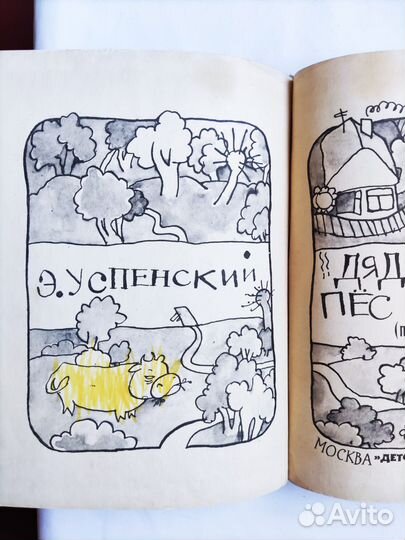 Э. УСПЕНСКИЙ
ДЯД
ПЁС
МОСКВА »ДЕТ
Avito